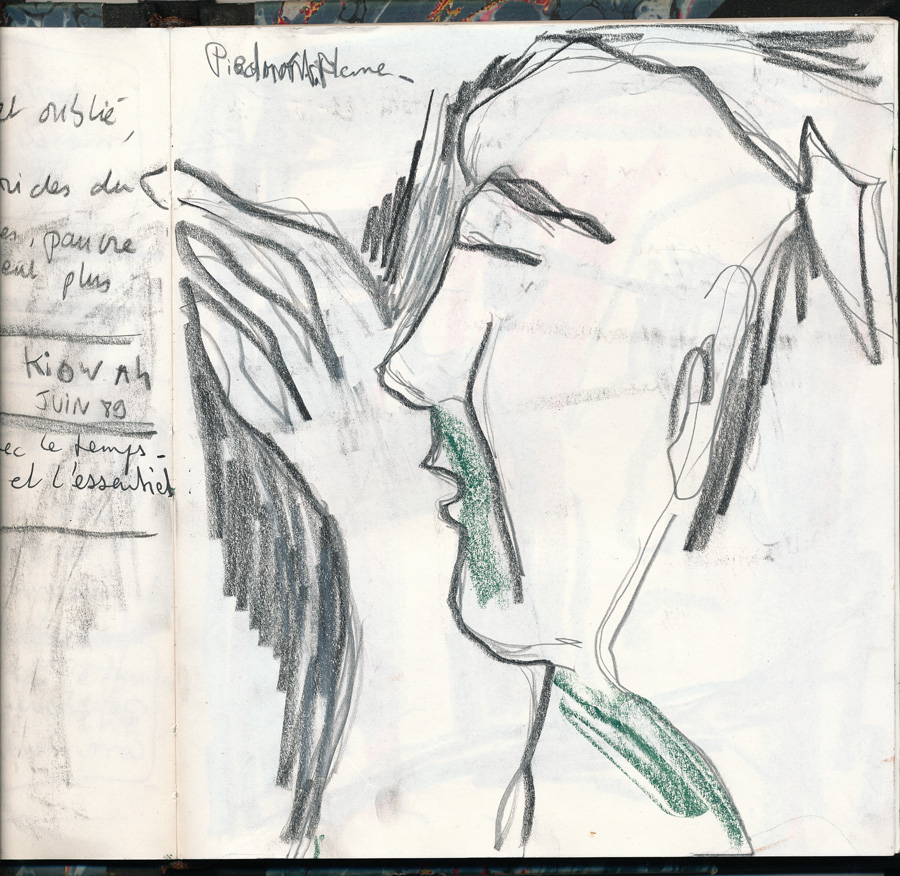 et oublié,
rides du
es, pauvre
plus
KiOWAh
JUIN 89
ec le temps_
et l'essentiel :